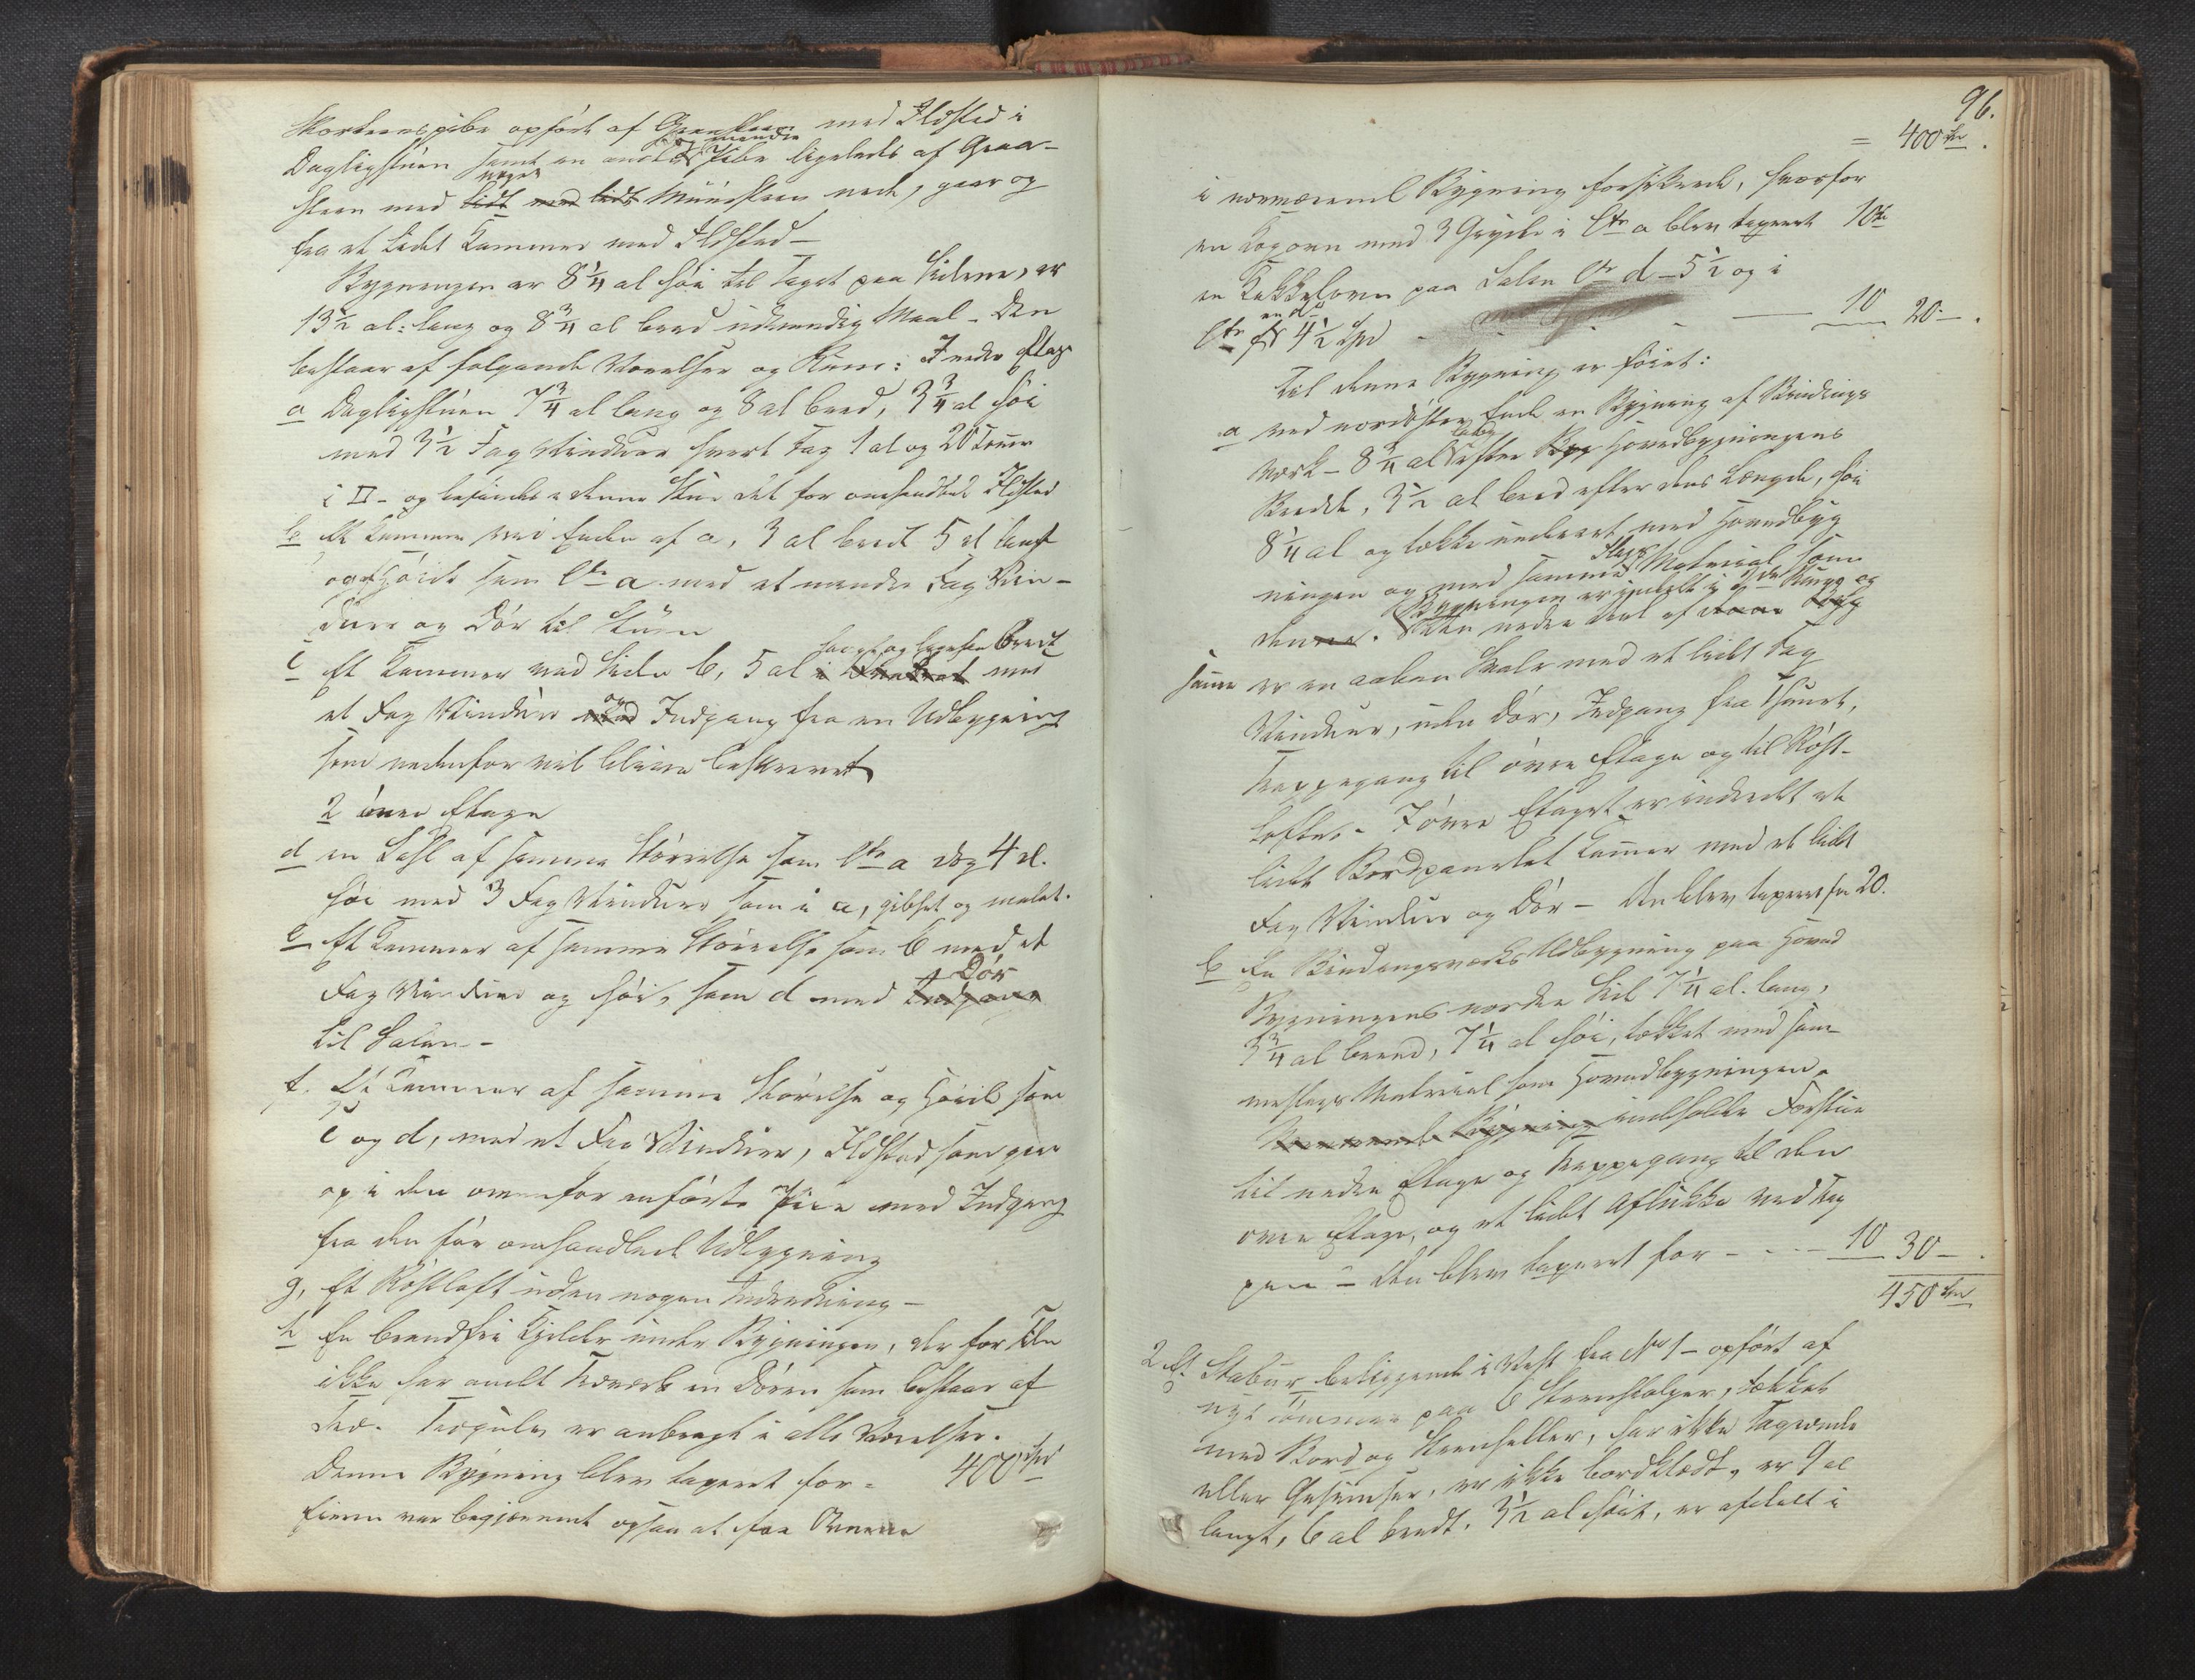 Skorsteenspibe opført af Graasteen med Ildsted i
Dagligstuen samt en anden mindre Pibe ligeledes af Graa-
steen med noget lidt med lidt Muursteen nede, gaar op
fra et lidet Kammer med Ildsted –
Bygningen er 8 1/4 al høi til Taget paa Siderne, er
13 1/2 al: lang og 8 3/4 al bred udvendig Maal – Den
bestaar af følgende Værelser og Rum: I nedre Etage
a Dagligstuen 7 3/4 al lang og 8 al bred, 3 3/4 al høi
med 3 1/2 Fag Vinduer hvert Fag 1 al og 20 Tommer
i □ – og befindes i denne Stue det før omhandlede Ildsted
b Et Kammer ved Enden af a, 3 al bredt 5 al langt
og Høide som Ltr a med et mindre Fag Vin-
duer og Dør til Stuen
c Et Kammer ved Siden b, 5 al i langt og ligesaa bredt med
et Fag Vinduer og med Indgang fra en Udbygning
som nedenfor vil blive beskrevet
2 øvre Etage
d en Sahl af samme Størrelse som Ltr a dog 4 al.
høi med 3 Fag Vinduer som i a, gibset og malet.
e Et Kammer af samme Størrelse som b med et
Fag Vinduer og høit som d med Dør Indgang
til Salen –
f. Et Kammer af samme Størrelse og Høide som
c og d, med et Fag Vinduer, Ildsted som gaar
op i den ovenfor anførte Pibe med Indgang
fra den før omhandlede Udbygning
g, Et Røstloft uden nogen Indredning –
h En brandfri Kjelder under Bygningen, der for Ilde
ikke har andet Træværk en Døren som bestaar af
Træ. Trægulv er anbragt i alle Værelser.
Denne Bygning blev taxeret for = 400 Spd
Eieren var begjærende ogsaa at faa Ovnene
96.
= 400 Spd.
i nærværende Bygning forsikrede, hvorfor
en Kogovn med 3 Gryder i Ltr a blev taxeret 10 Spd
en Kakkelovn paa Salen Ltr d – 5 1/2 og i
Ltr f en do 4 1/2 Spd 10 20 – .
Til denne Bygning er føiet:
a ved nordøstre Ende en Bygning af Bindings
værk – 8 3/4 al lang efter Byg Hovedbygningens
Bredde, 3 1/2 al bred efter dens Længde, høi
8 1/4 al og tækket med Hovedbyg
ningen og med samme Slags Material som
denne. Bygningen er inddelt i Den nedre Deel af
samme er en aaben Svale med et lidet Fag
Vinduer, uden Dør, Indgang fra Thunet,
Trappegang til øvre Etage og til Røst-
loftet. I øvre Etagen er indredet et
lidet Bordpanelet Kammer med et lidet
Fag Vinduer og Dør – Den blev taxeret for 20.
b En Bindingsværks Udbygning paa Hoved
Bygningens nordre Side 7 1/4 al. lang,
3 3/4 al bred, 7 1/4 al høi, tækket med sam-
meslags Material som Hovedbygningen.
Nærværende Bygning indeholder Forstue
til nedre Etage og Trappegang til den
øvre Etage, og et lidet Aflukke ved Trap
pen – Den blev taxeret for – – – 10 30 – .
450 Spd
2 Et Stabur beliggende i Vest fra No 1 – opført af
nyt Tømmer paa 6 Steenstolper, tækket
med Bord og Steenheller, har ikke Tagrende
eller Gesimser, er ikke bordklædt, er 9 al
langt, 6 al bredt, 3 1/2 al høit, er afdelt i